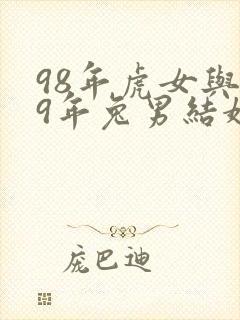 98年虎女與
9年兔男結婚
庞巴迪